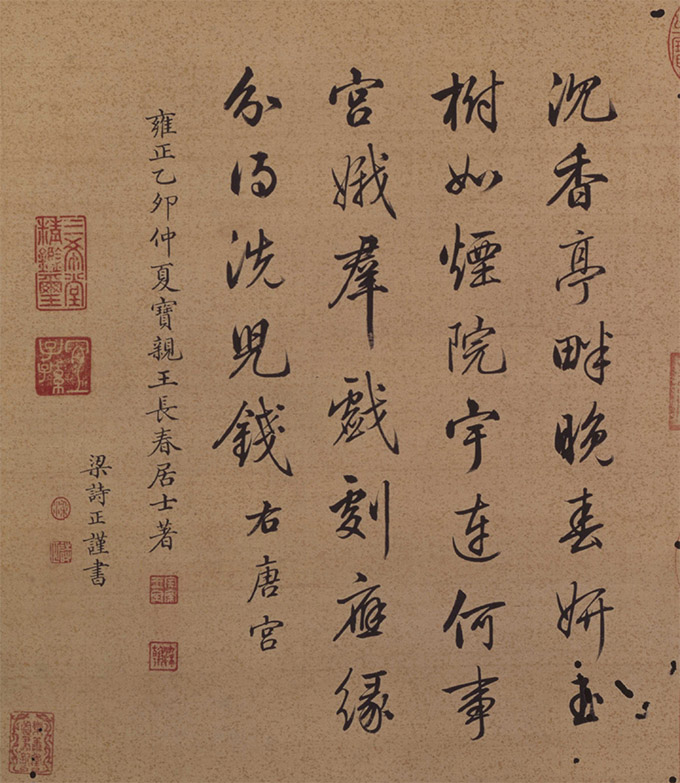 沉香亭畔晚春妍
樹如煙院宇連何事
宮娥羣戲劇應緣
分得洗兒錢右唐宮
雍正乙卯仲夏寶親王長春居士著
梁詩正謹書
三希堂精鑑璽
宜子孫